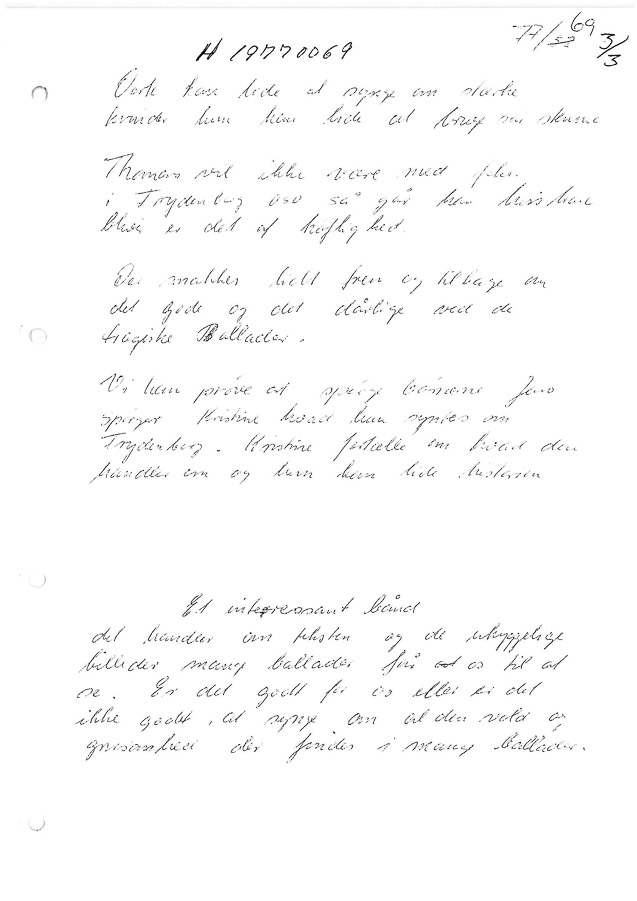 77/52 69 3/3
H 19770069
kan lide at synge om stærke
kvinder hun kan lide at bruge sin stemme
Thomas vil ikke være med
i Frydenborg også så går han hvis han
bliver er det af høflighed.
De snakker lidt frem og tilbage om
det gode og det dårlige ved de
tragiske Ballader.
Vi kan prøve at spørge børnene Jens
spørger Kristine hvad hun syntes om
Frydenborg. Kristine fortælle om hvad den
handler om og hun kan lide historien
Et interessant bånd
det handler om teksten og de uhyggelige
billeder mange ballader får os til at
se. Er det godt for os eller er det
ikke godt, at synge om al den vold og
grusomhed der findes i mange ballader.